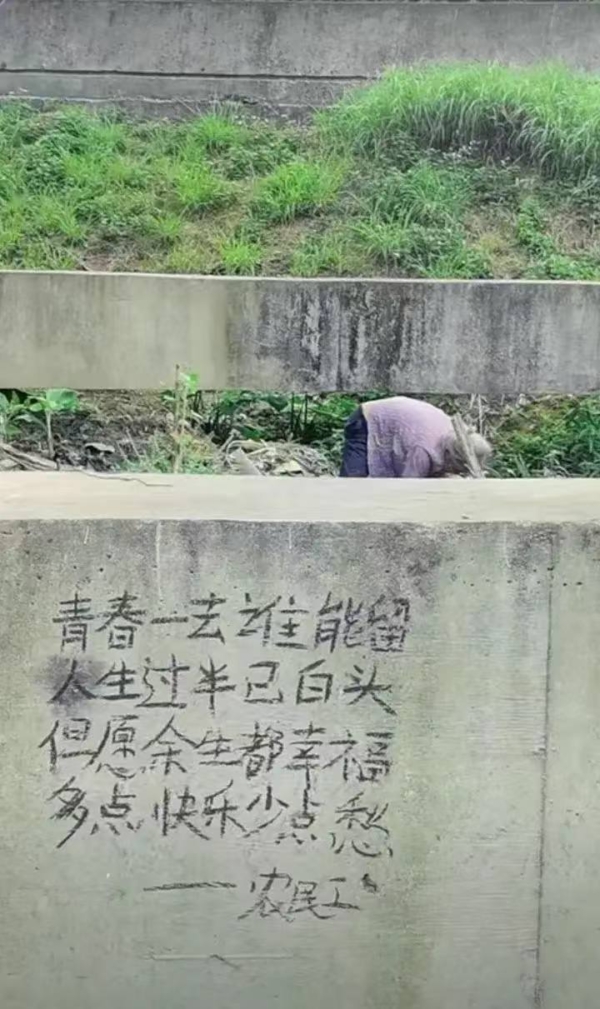 青春一去谁能留
人生过半已白头
但愿余生都幸福
多点快乐少点愁
——农民工